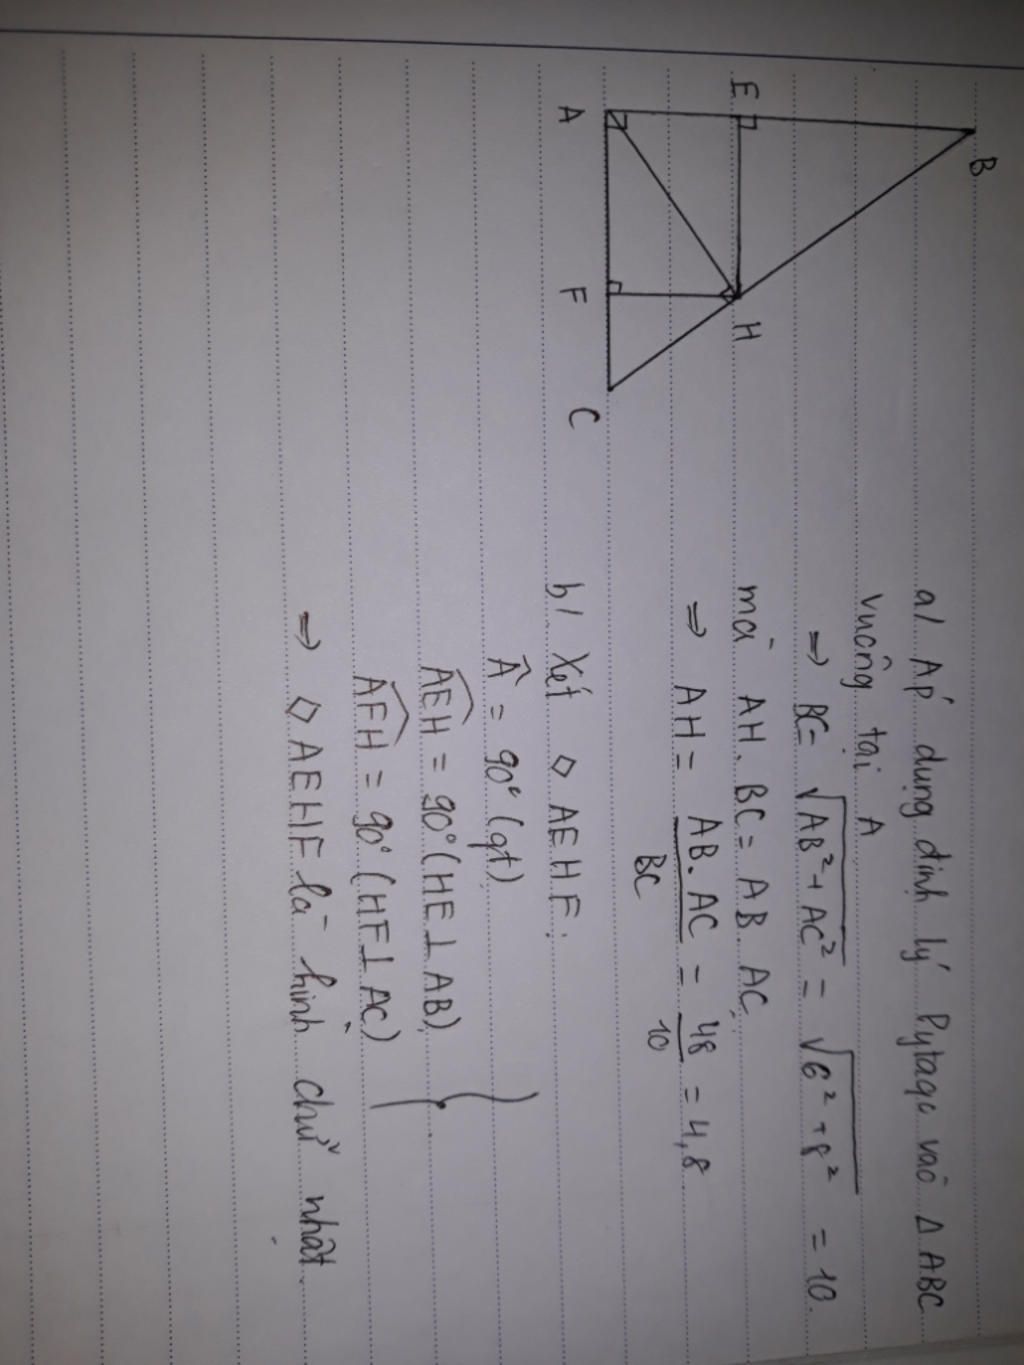 B
E
H
A
F
C
a/ Áp dụng định lý Pytago vào Δ ABC
vuông tại A
⇒ BC = √AB² + AC² = √6² + 8² = 10.
mà AH. BC = AB. AC
⇒ AH = AB. AC / BC = 48 / 10 = 4,8
b/ Xét ◇ AEHF:
Â = 90° (gt)
AEH = 90° (HE ⊥ AB)
AFH = 90° (HF ⊥ AC)
⇒ ◇ AEHF là hình chữ nhật.